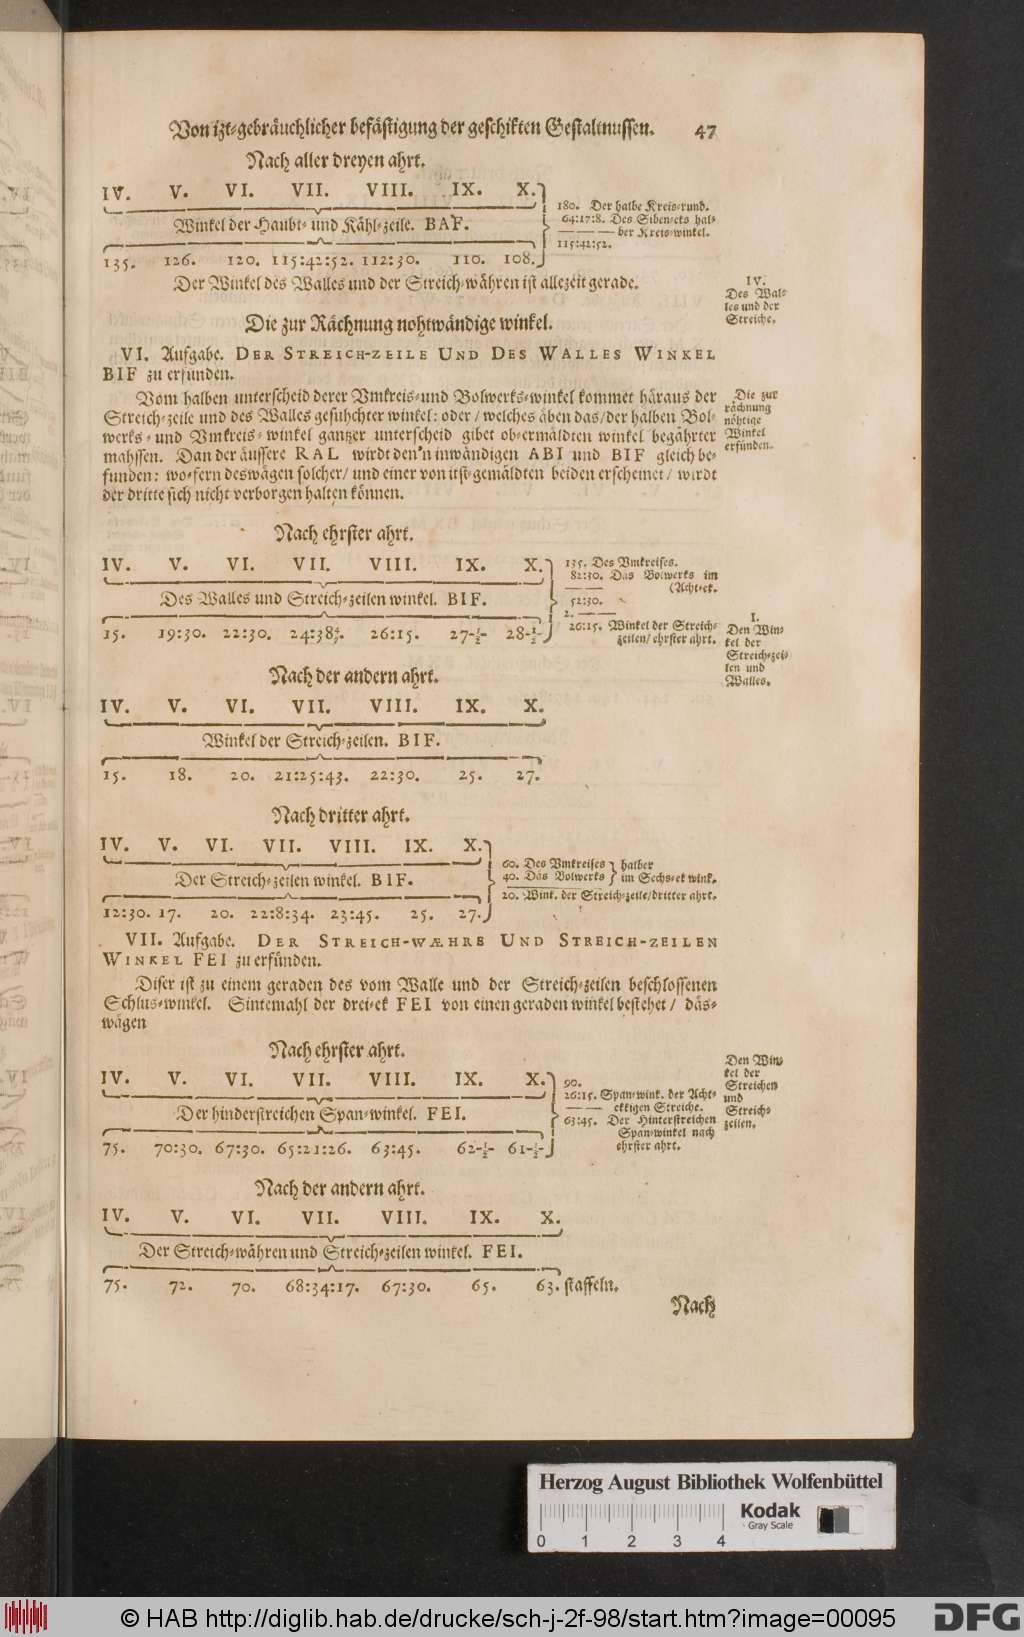 Von izt-gebräuchlicher befästigung der geschikten Gestaltnussen. 47
Nach aller dreyen ahrt.
IV. V. VI. VII. VIII. IX. X.
Winkel der Haubt- und Kähl-zeile. BAF.
135. 126. 120. 115:42:52. 112:30. 110. 108.
180. Der halbe Kreis-rund.
64:17:8. Des Siben-eks hal-
ber Kreis-winkel.
115:42:52.
Der Winkel des Walles und der Streich-währen ist allezeit gerade.
IV.
Des Wal-
les und der
Streiche.
Die zur Rächnung nohtwändige winkel.
VI. Aufgabe. DER STREICH-ZEILE UND DES WALLES WINKEL
BIF zu erfünden.
Vom halben unterscheid derer Vmkreis- und Bolwerks-winkel kommet häraus der
Streich-zeile und des Walles gesuhchter winkel: oder / welches äben das / der halben Bol-
werks- und Vmkreis-winkel gantzer unterscheid gibet ob-ermäldten winkel begährter
mahssen. Dan der äussere RAL wirdt den'n inwändigen ABI und BIF gleich be-
funden: wo-fern deswägen solcher / und einer von itst-gemäldten beiden erscheinet / wirdt
der dritte sich nicht verborgen halten können.
Die zur
rächnung
nöhtige
Winkel
erfünden.
Nach ehrster ahrt.
IV. V. VI. VII. VIII. IX. X.
Des Walles und Streich-zeilen winkel. BIF.
15. 19:30. 22:30. 24:38 4/7. 26:15. 27-1/2- 28-1/2-
135. Des Vmkreises.
82:30. Das Bolwerks im
(Acht-ek.
52:30.
2.
26:15. Winkel der Streich-
zeilen / ehrster ahrt.
I.
Den Win-
kel der
Streich-zei-
len und
Walles.
Nach der andern ahrt.
IV. V. VI. VII. VIII. IX. X.
Winkel der Streich-zeilen. BIF.
15. 18. 20. 21:25:43. 22:30. 25. 27.
Nach dritter ahrt.
IV. V. VI. VII. VIII. IX. X.
Der Streich-zeilen winkel. BIF.
12:30. 17. 20. 22:8:34. 23:45. 25. 27.
60. Des Vmkreises } halber
40. Das Bolwerks } im Sechs-ek wink.
20. Wink. der Streich-zeile / dritter ahrt.
VII. Aufgabe. DER STREICH-WÆHRE UND STREICH-ZEILEN
WINKEL FEI zu erfünden.
Diser ist zu einem geraden des vom Walle und der Streich-zeilen beschlossenen
Schlus-winkel. Sintemahl der drei-ek FEI von einen geraden winkel bestehet / däs-
wägen
Nach ehrster ahrt.
IV. V. VI. VII. VIII. IX. X.
Der hinderstreichen Span-winkel. FEI.
75. 70:30. 67:30. 65:21:26. 63:45. 62-1/2- 61-1/2-
90.
26:15. Span-wink. der Acht-
ekkigen Streiche.
63:45. Der Hinterstreichen
Span-winkel nach
ehrster ahrt.
Den Win-
kel der
Streichen
und
Streich-
zeilen.
Nach der andern ahrt.
IV. V. VI. VII. VIII. IX. X.
Der Streich-währen und Streich-zeilen winkel. FEI.
75. 72. 70. 68:34:17. 67:30. 65. 63. staffeln.
Nach
Herzog August Bibliothek Wolfenbüttel
Kodak
Gray Scale
0 1 2 3 4
© HAB http://diglib.hab.de/drucke/sch-j-2f-98/start.htm?image=00095
DFG